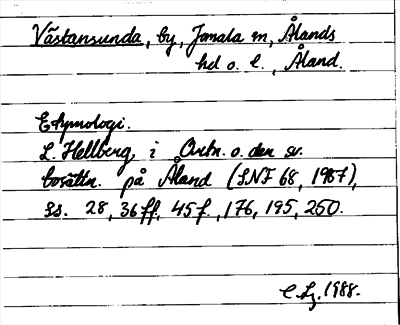 Västansunda, by, Jomala sn, Ålands
hd o. l., Åland.
Etymologi.
L. Hellberg, i Ortn. o. den sv.
bosättn. på Åland (SNF 68, 1987),
ss. 28, 36 ff, 45 f., 176, 195, 250.
1988.